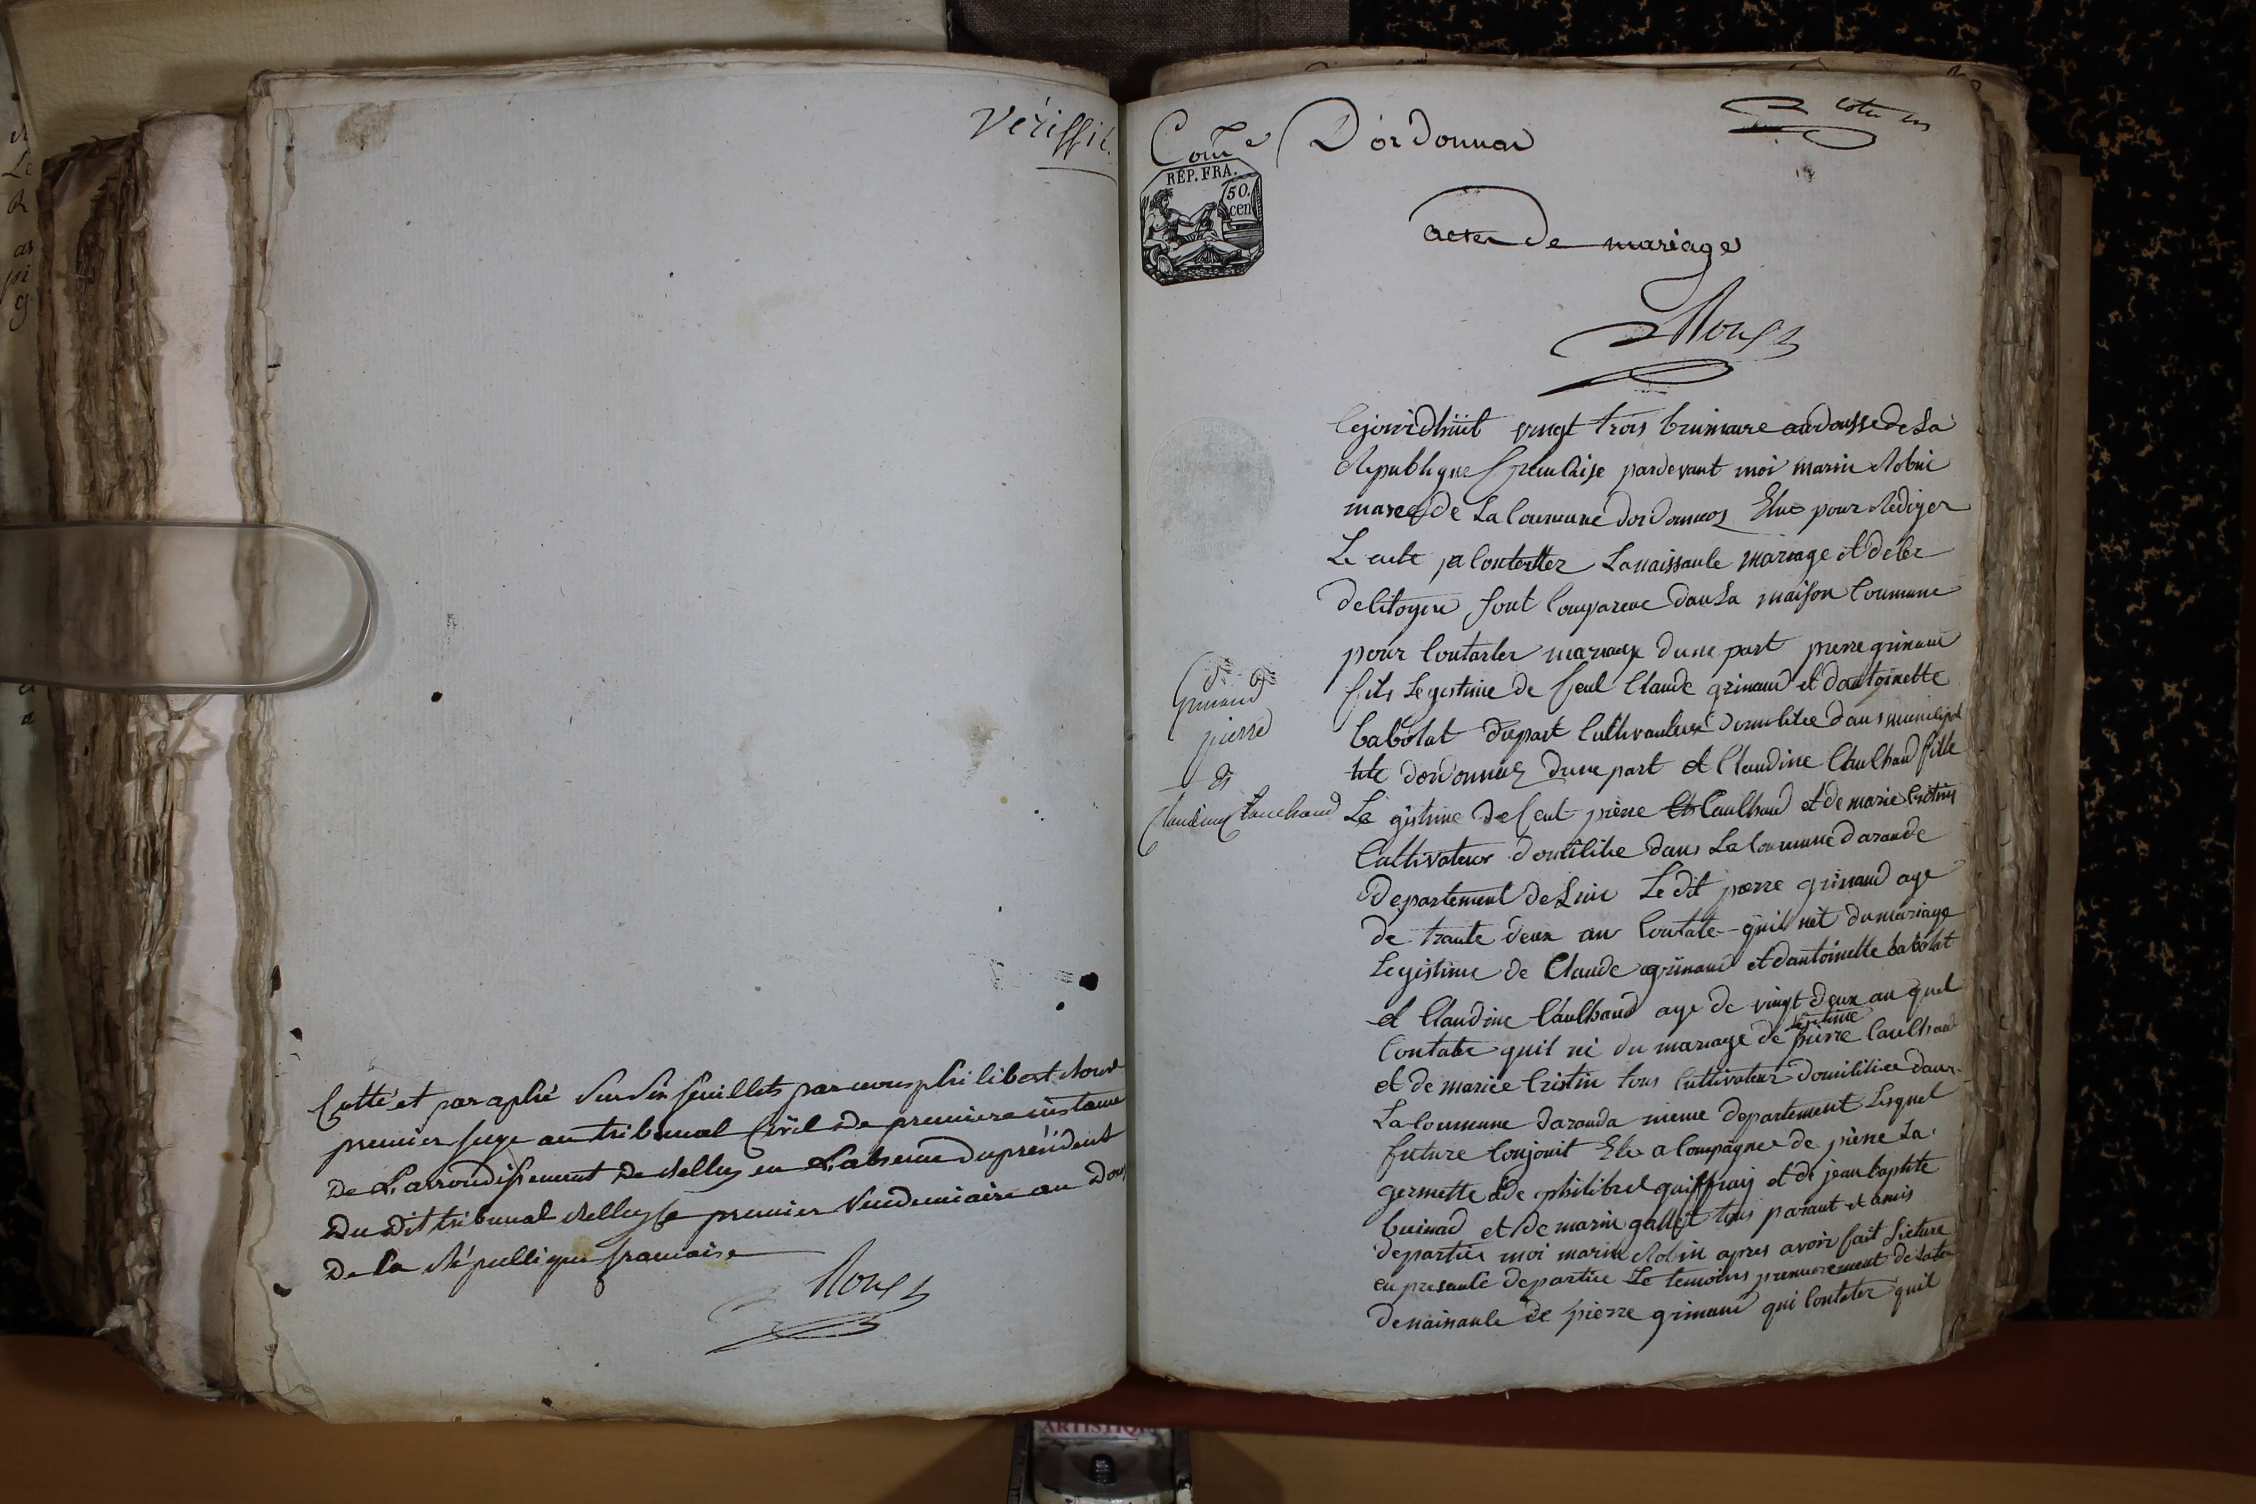 vériffié
Cotté et paraphé Sur Six feuillets par nous philibert Roux
premier juge au tribunal Civil de premiere instance
De L'arrondissement de Belley en L'absence du président
Du dit tribunal Belley Le premier Vendemiaire an Dou
De La République francaise
Roux
Com.e D'ordonnas
REP. FRA.
50.
cen
actes de mariages
Roux
Cejourdhuit vingt trois brumaire an dousse de La
Republique francaise pardevant moi marin Robin
mare de La Commune dordonnas Elue pour Rediger
Le acte a Contatter La naissance mariage et deces
de Citoyen sont Comparere dans La maison Commune
pour Contacter mariage dune part pierre grinand
fils Legestime de feut Claude grinand et dantoinette
babolat depart Cultivauteur domilice dans municipal
tité dordonnas dune part et Claudine Cauchand fille
Le gistime de feut pierre Cauchand et de marie Cristin
Cultivateur domilicie dans La Commune darande
Departement de Lain Le dit pierre grinand age
de trante deux an Contate quil net du mariage
Legistime de Claude grinand et dantoinette babolat
et Claudine Cauchand age de vingt deux an quel
Legetime
Contate quil né du mariage de pierre Cauchand
et de mariee Cristin tous Cultivateur domilicie dans
La Commune daranda meme departement Lesquel
future Conjoint Ete a Compagne de pierre La
germette et de philibert quiffray et de jean baptiste
buinad et de marin gallet tous parant et amis
departie moi marin Robin apres avoir fait Lecture
en presance de partie Le temoins premierement de Lacte
de naisance de pierre grinand qui Contater quil
Grinand
pierre
&
Claudine Cauchand